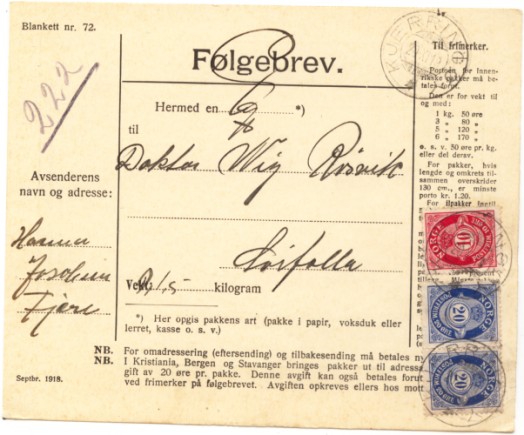 Blankett nr. 72.
222
Følgebrev.
KJERRINGØ
Til frimerker.
Portoen for innen-
rikske pakker må be-
tales forut.
Den er for vekt til
og med:
1 kg. 50 øre
3 „ 80 „
5 „ 120 „
6 „ 170 „
o. s. v. 50 øre pr. kg.
eller del derav.
For pakker, hvis
lengde og omkrets til-
sammen overskrider
130 cm., er minste
porto kr. 1.20.
For ilpakker
Hermed en *)
til
Doktor Wig Røsvik
Avsenderens
navn og adresse:
Hanna
Fjære
Vekt: 1,5 kilogram
*) Her opgis pakkens art (pakke i papir, voksduk eller
lerret, kasse o. s. v.)
NORGE
10
NORGE
20
NORGE
20
NB. For omadressering (eftersending) og tilbakesending må betales ny
NB. I Kristiania, Bergen og Stavanger bringes pakker ut til adressa
gift av 20 øre pr. pakke. Denne avgift kan også betales forut
ved frimerker på følgebrevet. Avgiften opkreves ellers hos mott
Septbr. 1918.